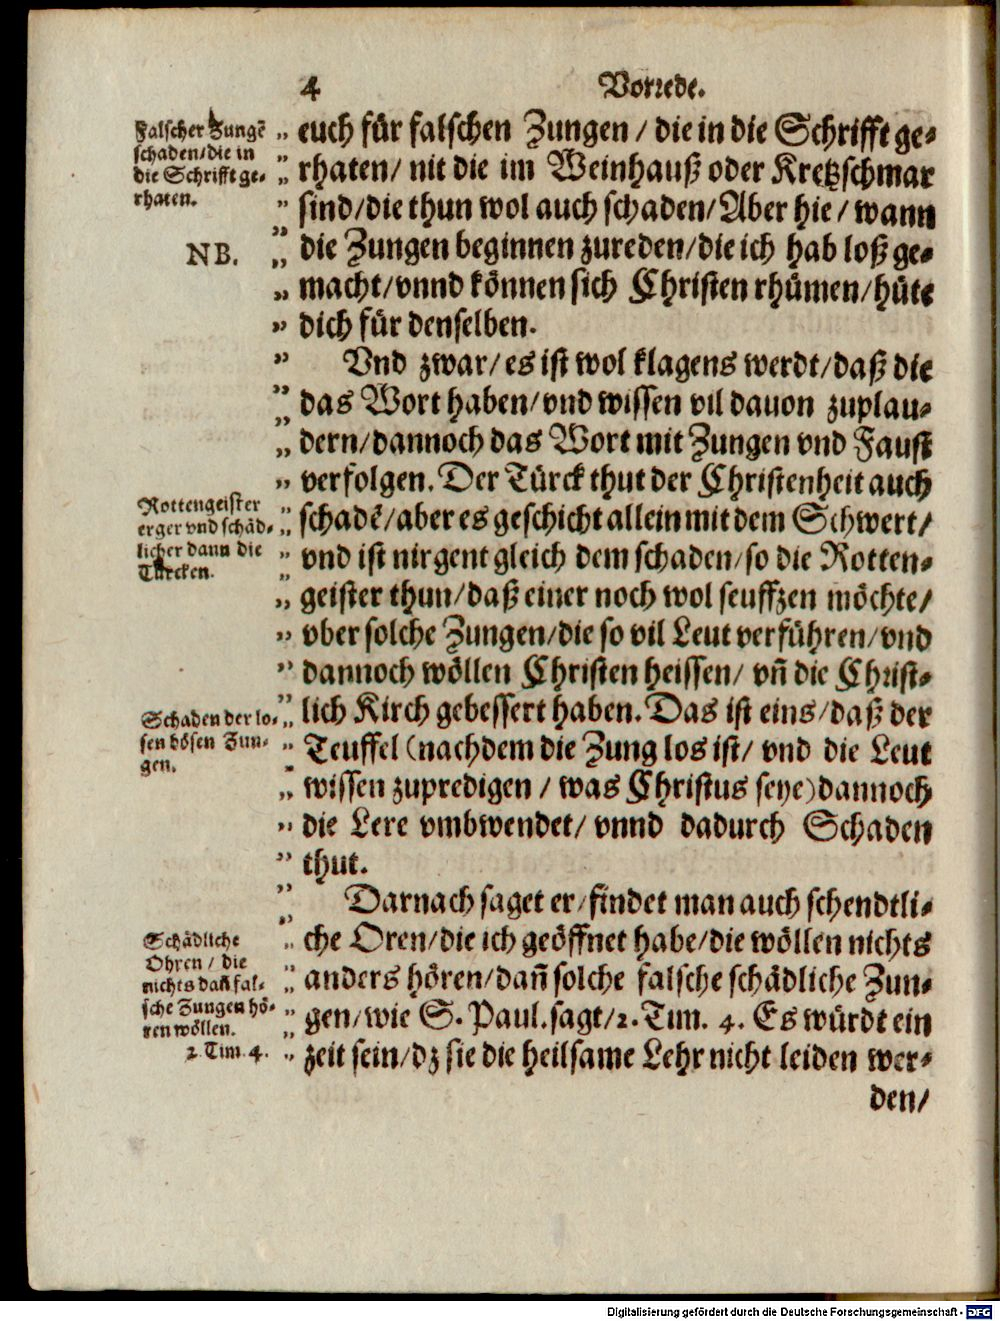 4 Vorrede.
Falscher Zungē
schaden/die in
die Schrifft ge-
rhaten.
NB.
„ euch für falschen Zungen / die in die Schrifft ge-
„ rhaten/ nit die im Weinhauß oder Kretzschmar
„ sind/die thun wol auch schaden/Aber hie/ wann
„ die Zungen beginnen zureden/die ich hab loß ge-
„ macht/vnnd können sich Christen rhümen/hüte
„ dich für denselben.
„ Vnd zwar/es ist wol klagens werdt/daß die
„ das Wort haben/vnd wissen vil dauon zuplau-
„ dern/dannoch das Wort mit Zungen vnd Faust
„ verfolgen. Der Türck thut der Christenheit auch
Rottengeister
erger vnd schäd-
licher dann die
Türcken.
„ schadē/aber es geschicht allein mit dem Schwert/
„ vnd ist nirgent gleich dem schaden/so die Rotten-
„ geister thun/daß einer noch wol seuffzen möchte/
„ vber solche Zungen/die so vil Leut verführen/vnd
„ dannoch wöllen Christen heissen/ vn̄ die Christ-
Schaden der lo-
sen bösen Zun-
gen.
„ lich Kirch gebessert haben. Das ist eins/daß der
„ Teuffel (nachdem die Zung los ist/ vnd die Leut
„ wissen zupredigen / was Christus seye) dannoch
„ die Lere vmbwendet/ vnnd dadurch Schaden
„ thut.
„ Darnach saget er/findet man auch schendtli-
Schädliche
Ohren / die
nichts dan̄ fal-
sche Zungen hö-
ren wöllen.
2. Tim. 4.
„ che Oren/die ich geöffnet habe/die wöllen nichts
„ anders hören/dan̄ solche falsche schädliche Zun-
„ gen/wie S. Paul. sagt/2. Tim. 4. Es würdt ein
„ zeit sein/dz sie die heilsame Lehr nicht leiden wer-
den/
Digitalisierung gefördert durch die Deutsche Forschungsgemeinschaft - DFG